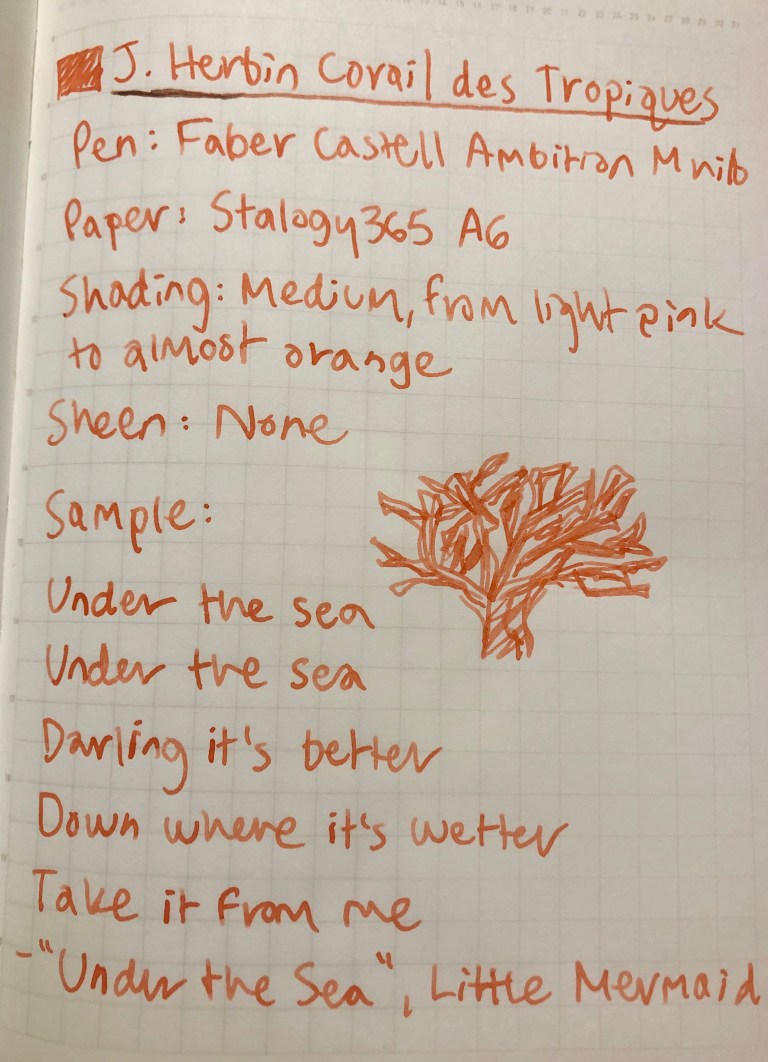 J. Herbin Corail des Tropiques
Pen: Faber Castell Ambition M nib
Paper: Stalogy 365 A6
Shading: Medium, from light pink
to almost orange
Sheen: None
Sample:
Under the sea
Under the sea
Darling it's better
Down where it's wetter
Take it from me
-"Under the Sea", Little Mermaid